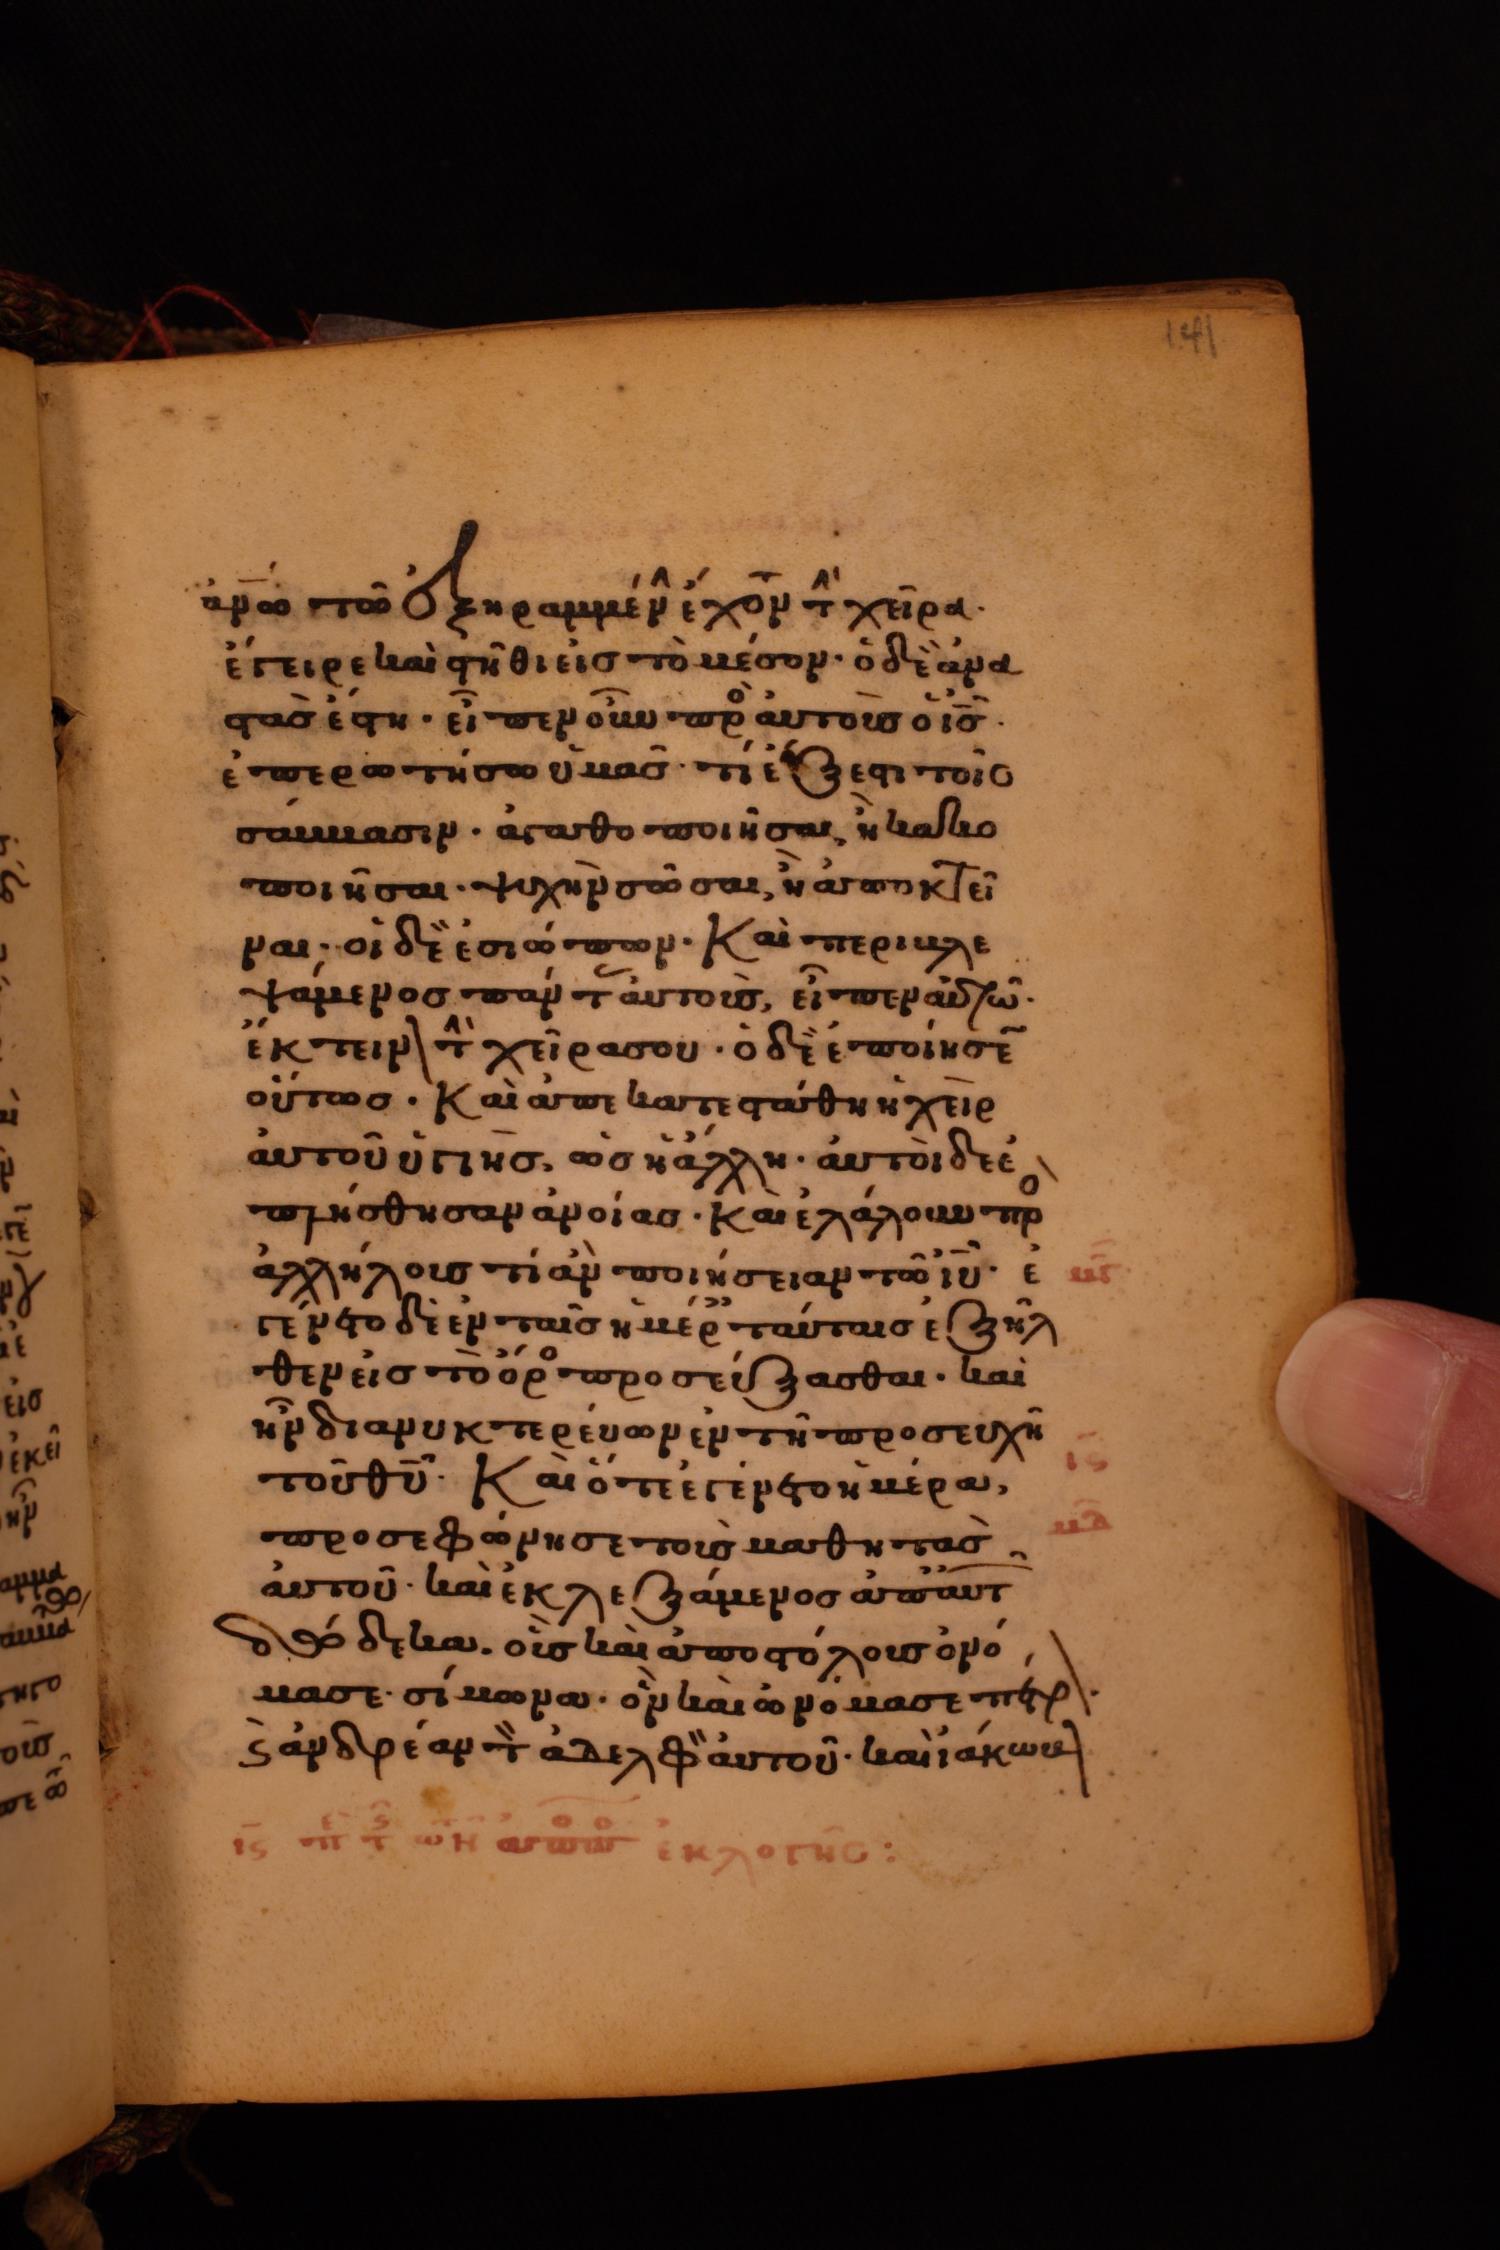 141
ἀν̅ω τῶ ἐξηραμμέν ἔχον τ χεῖρα·
ἔγειρε καὶ στῆθι εἰς τὸ μέσον· ὁ δὲ ἀνα
στὰς ἔστη· εἶπεν οὖν πρ αὐτοὺς ὁ ι̅ς̅·
ἐπερωτήσω ὑμᾶς· τί ἔξεστι τοῖς
σάββασιν· ἀγαθοποιῆσαι, ἢ κακο
ποιῆσαι· ψυχὴν σῶσαι, ἢ ἀποκτεῖ
ναι· οἱ δὲ ἐσιώπων· Καὶ περιβλε
ψάμενος πάντ αὐτοὺς, εἶπεν αὐτῶ·
ἔκτειν τ χεῖρα σου· ὁ δὲ ἐποίησε
οὕτως· Καὶ ἀπεκατεστάθη ἡ χεὶρ
αὐτοῦ ὑγιὴς, ὡς ἡ ἄλλη· αὐτοὶ δὲ ἐ
πλήσθησαν ἀνοίας· Καὶ ἐλάλουν πρ
ἀλλήλους τί ἂν ποιήσειαν τῶ ι̅υ̅· ἐ
γένετο δὲ ἐν ταῖς ἡμέρ ταύταις ἐξῆλ
θεν εἰς τὸ ὄρ προσεύξασθαι· καὶ
ἦν διανυκτερεύων ἐν τῆ προσευχῆ
τοῦ θ̅υ̅· Καὶ ὅτε ἐγένετο ἡμέρα,
προσεφώνησε τοὺς μαθητὰς
αὐτοῦ· καὶ ἐκλεξάμενος ἀπ αὐτ
δώδεκα· οὓς καὶ ἀποστόλους ὀνό
μασε· σίμωνα· ὃν καὶ ὠνόμασε πέτρ·
ϛ ἀνδρέαν τ ἀδελφ αὐτοῦ· καὶ ἰάκωβ
ι̅ϛ̅ π τ ἐκλογῆς: